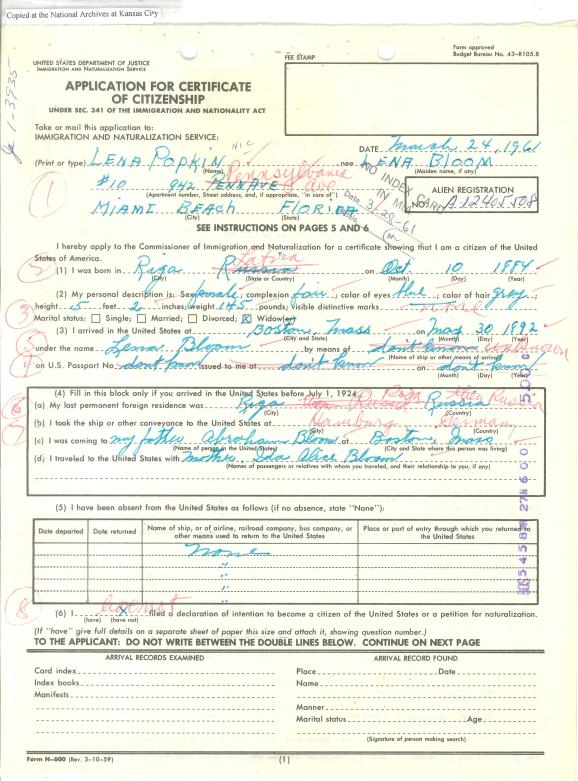 Copied at the National Archives at Kansas City
Form approved
Budget Bureau No. 43-R105.8
UNITED STATES DEPARTMENT OF JUSTICE
IMMIGRATION AND NATURALIZATION SERVICE
FEE STAMP
APPLICATION FOR CERTIFICATE
OF CITIZENSHIP
UNDER SEC. 341 OF THE IMMIGRATION AND NATIONALITY ACT
Take or mail this application to:
IMMIGRATION AND NATURALIZATION SERVICE:
DATE March 24, 1961
(Print or type) LENA POPKIN nee LENA BLOOM
(Name) (Maiden name, if any)
Pennsylvania
#10 942 PENN AVE
Ave
(Apartment number, Street address, and, if appropriate, "in care of")
NO INDEX CARD
IN MIA
Date 3/28/61
ALIEN REGISTRATION
NO. A12405508
MIAMI BEACH FLORIDA
(City) (State)
SEE INSTRUCTIONS ON PAGES 5 AND 6
I hereby apply to the Commissioner of Immigration and Naturalization for a certificate showing that I am a citizen of the United
States of America.
Latvia
(1) I was born in Riga Russia on Oct 10 1884
(City) (State or Country) (Month) (Day) (Year)
(2) My personal description is: Sex female; complexion fair; color of eyes blue; color of hair gray;
height 5 feet 2 inches; weight 145 pounds; visible distinctive marks none
Marital status: Single; Married; Divorced; X Widow(er)
(3) I arrived in the United States at Boston, Mass on May 30, 1892
(City and State) (Month) (Day) (Year)
under the name Lena Bloom by means of don't know
(Name of ship or other means of arrival)
on U.S. Passport No. don't know issued to me at don't know on don't know
(Month) (Day) (Year)
(4) Fill in this block only if you arrived in the United States before July 1, 1924.
(a) My last permanent foreign residence was Riga Russia
(City) (Country)
(b) I took the ship or other conveyance to the United States at Hamburg Germany
(City) (Country)
(c) I was coming to my father Abraham Bloom at Boston, Mass
(Name of person in the United States) (City and State where this person was living)
(d) I traveled to the United States with mother, Ida Alice Bloom
(Names of passengers or relatives with whom you traveled, and their relationship to you, if any)
(5) I have been absent from the United States as follows (if no absence, state "None"):
Date departed Date returned Name of ship, or of airline, railroad company, bus company, or other means used to return to the United States Place or port of entry through which you returned to the United States
None
"
"
"
(6) I X filed a declaration of intention to become a citizen of the United States or a petition for naturalization.
(have) (have not)
(If "have" give full details on a separate sheet of paper this size and attach it, showing question number.)
TO THE APPLICANT: DO NOT WRITE BETWEEN THE DOUBLE LINES BELOW. CONTINUE ON NEXT PAGE
ARRIVAL RECORDS EXAMINED ARRIVAL RECORD FOUND
Card index Place Date
Index books Name
Manifests
Manner
Marital status Age
(Signature of person making search)
Form N-600 (Rev. 3-10-59) (1)